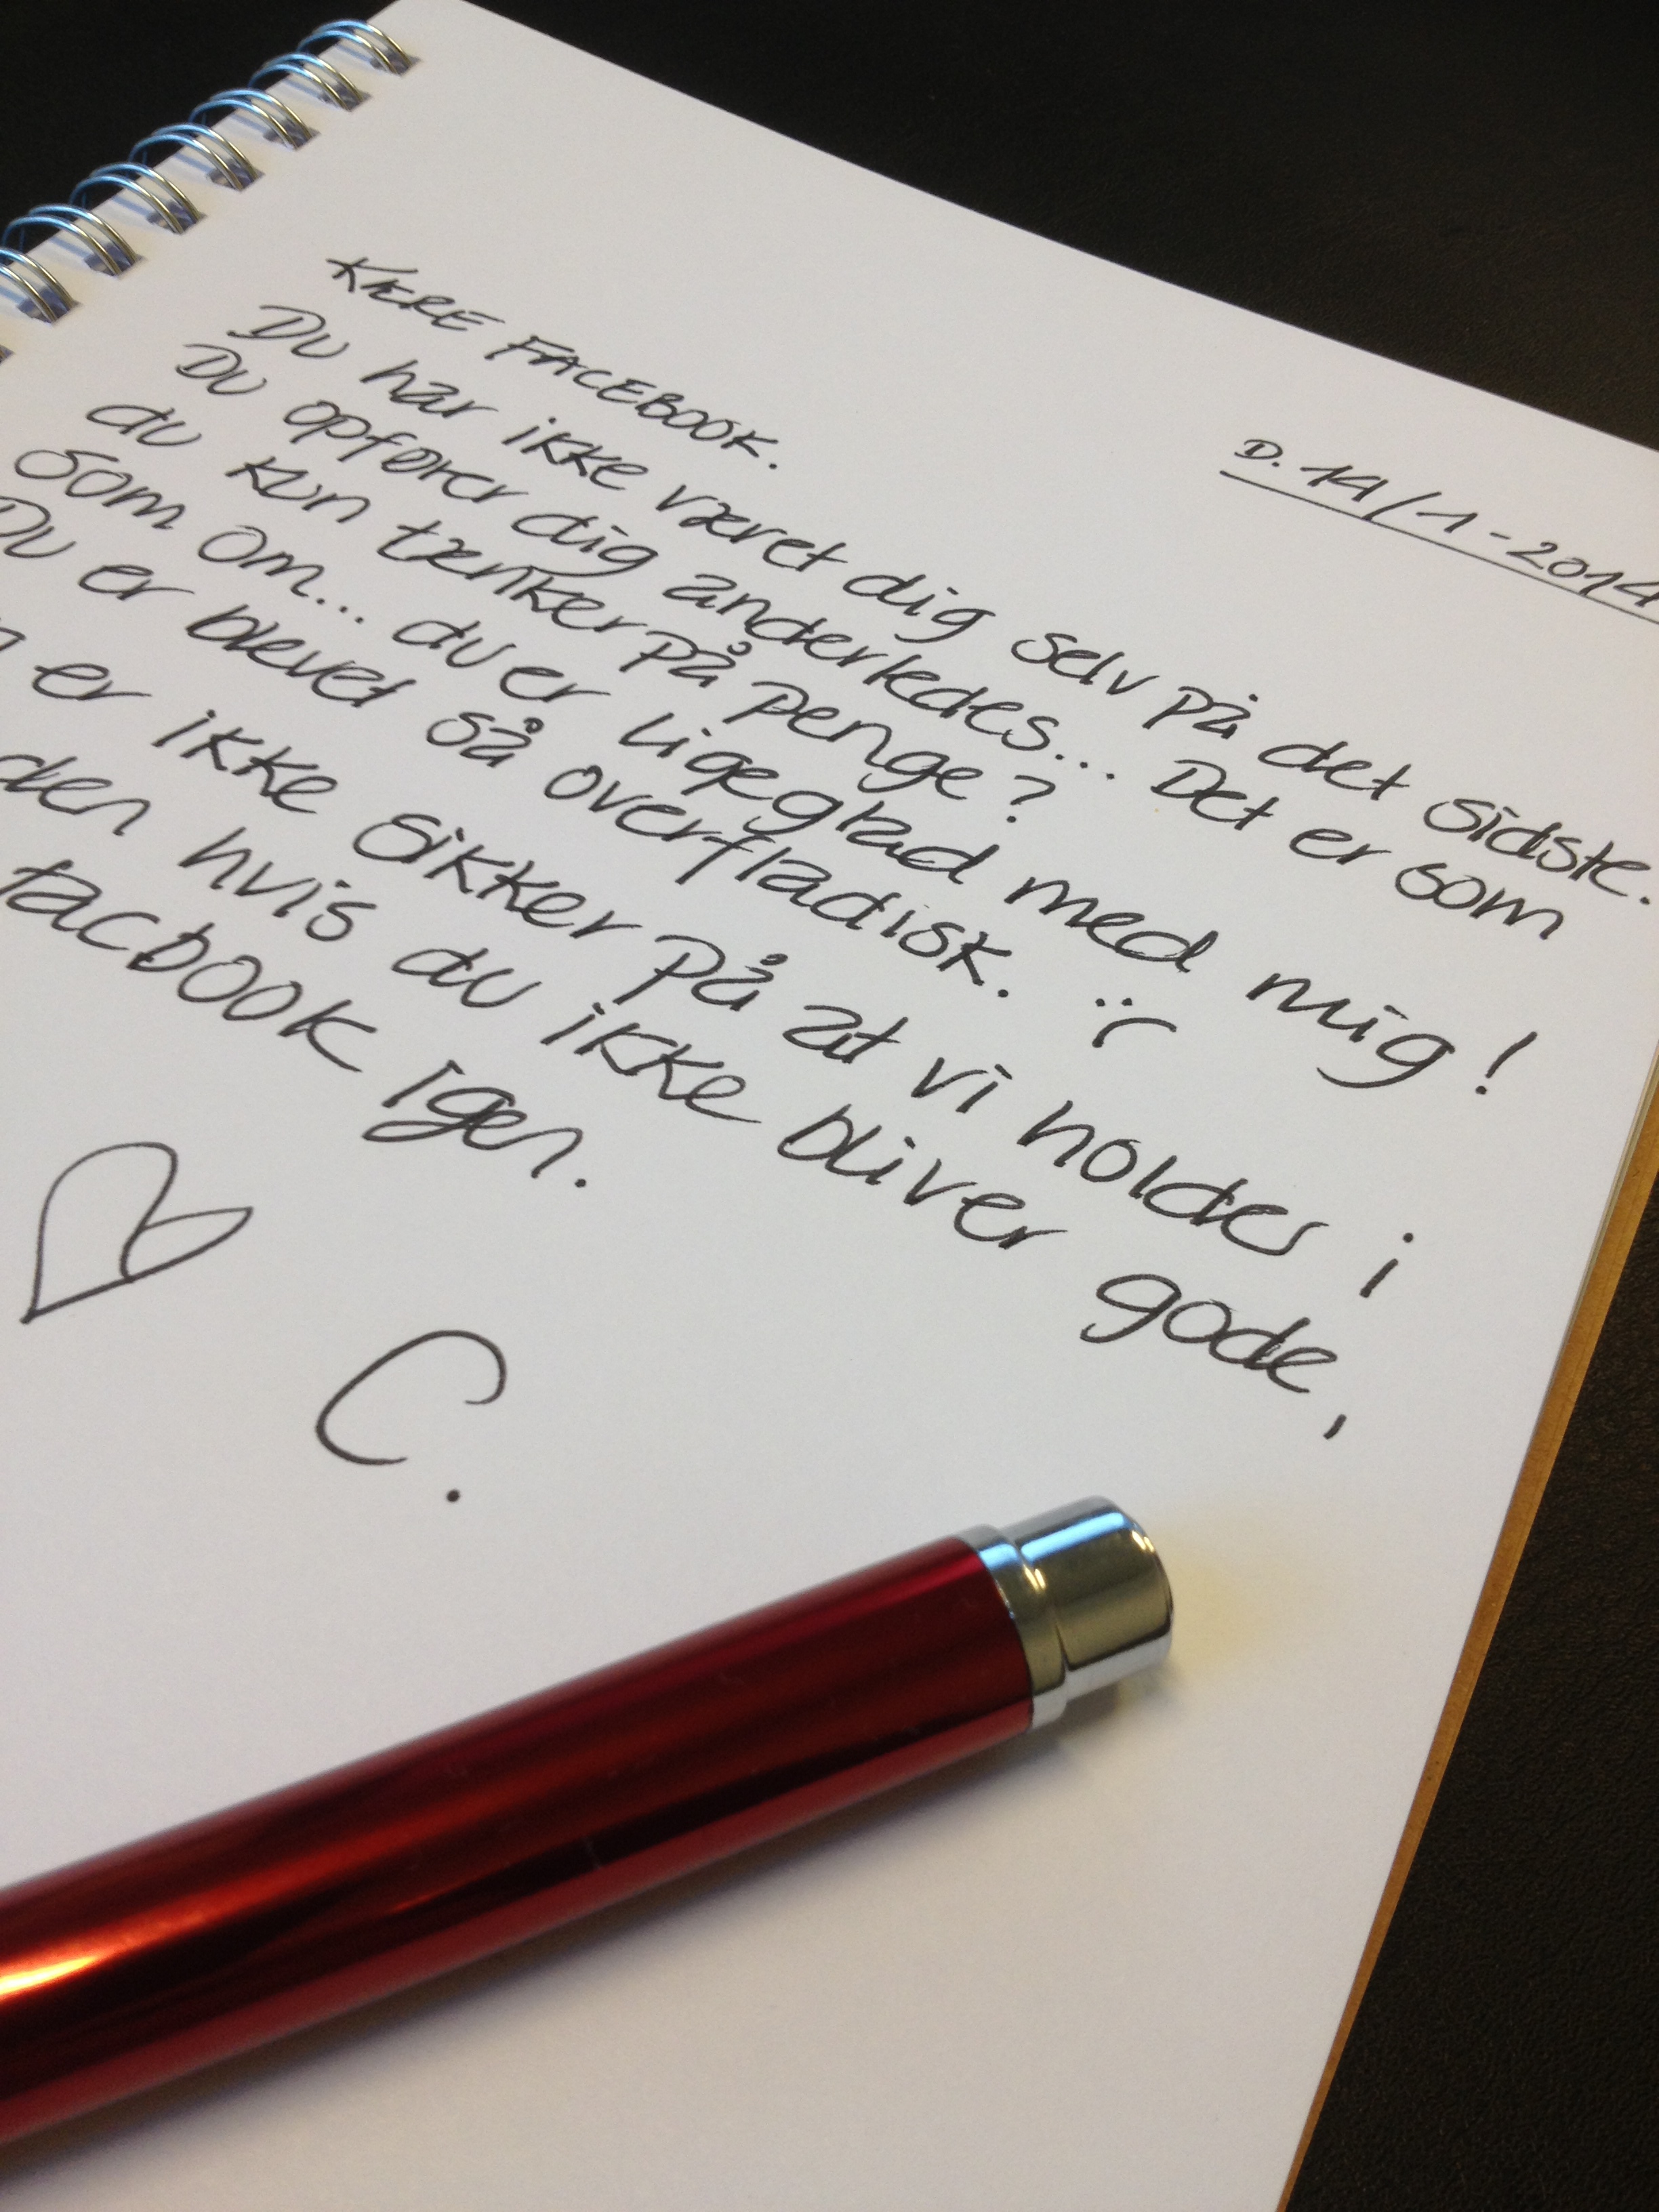 D. 14/1-2014
KÆRE FACEBOOK.
Du har ikke været dig selv på det sidste.
Du opfører dig anderledes... Det er som
du kun tænker på penge?
som om... du er ligeglad med mig!
Du er blevet så overfladisk. :(
er ikke sikker på at vi holder i
den hvis du ikke bliver gode,
facbook igen.
C.